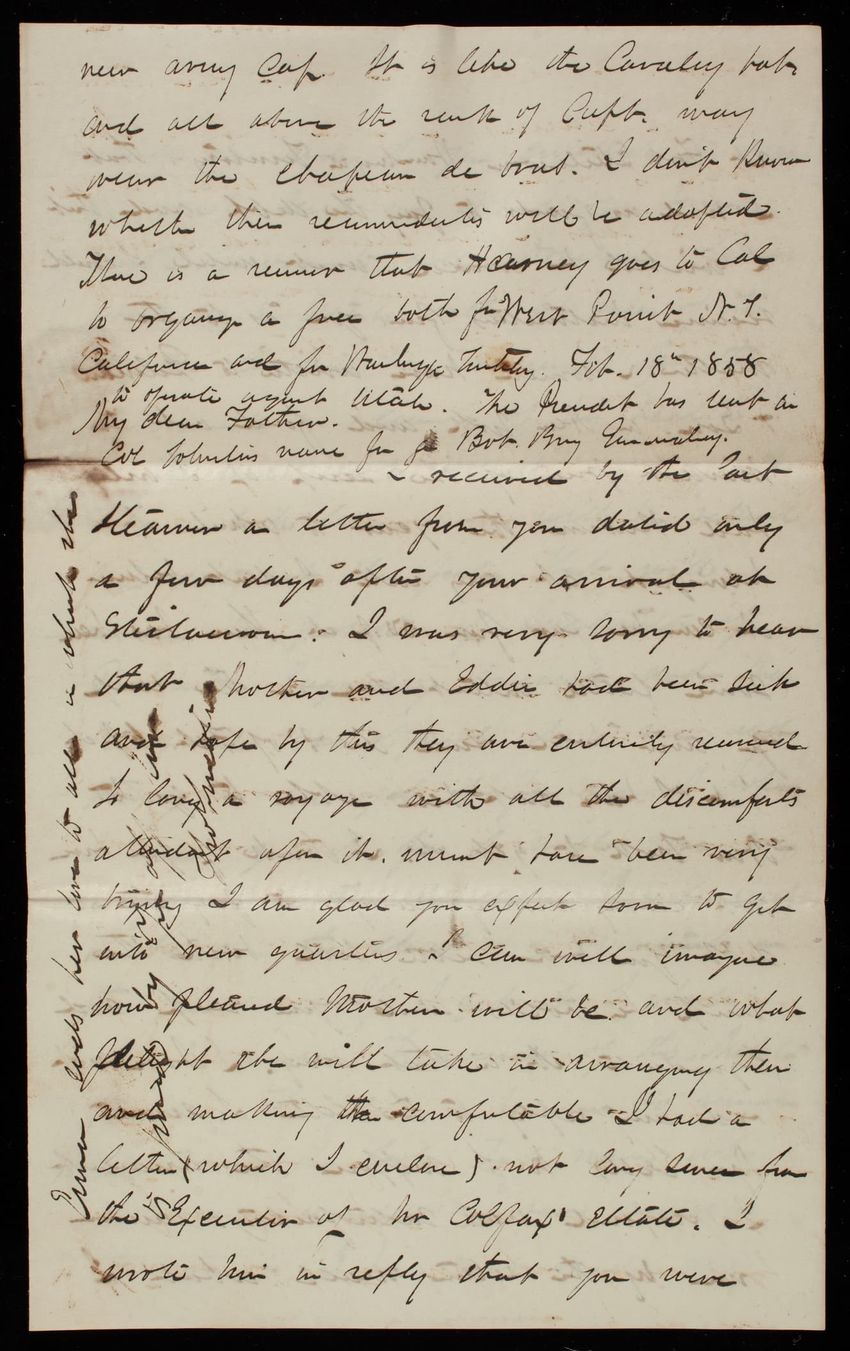 new army cap. It is like the Cavalry hat
and all above the rank of Capt. may
wear the chapeau de bras. I don't know
whether these will be adopted.
There is a rumor that Harney goes to Cal
to organize a force both fr
West Point N.Y.
California and fr Territory.
Feb. 18th 1858
to operate against Utah. The President has sent in
My dear Father.
Col Johnston's name for a Bvt. Brig
received by the last
Steamer a letter from you dated only
a few days after your arrival at
Steilacoom. I was very sorry to hear
that Mother and Eddie had been sick
and hope by this they are entirely
So long a voyage with all the discomforts
attendant upon it, must have been very
trying I am glad you expect soon to get
into new quarters. I can well imagine
how pleased Mother will be and what
delight she will take in arranging them
and making them comfortable I had a
letter (which I enclose) not long since from
the Executor of Mr Colfax' Estate. I
wrote him in reply that you were
Emma sends her love to all in which she
is joined by